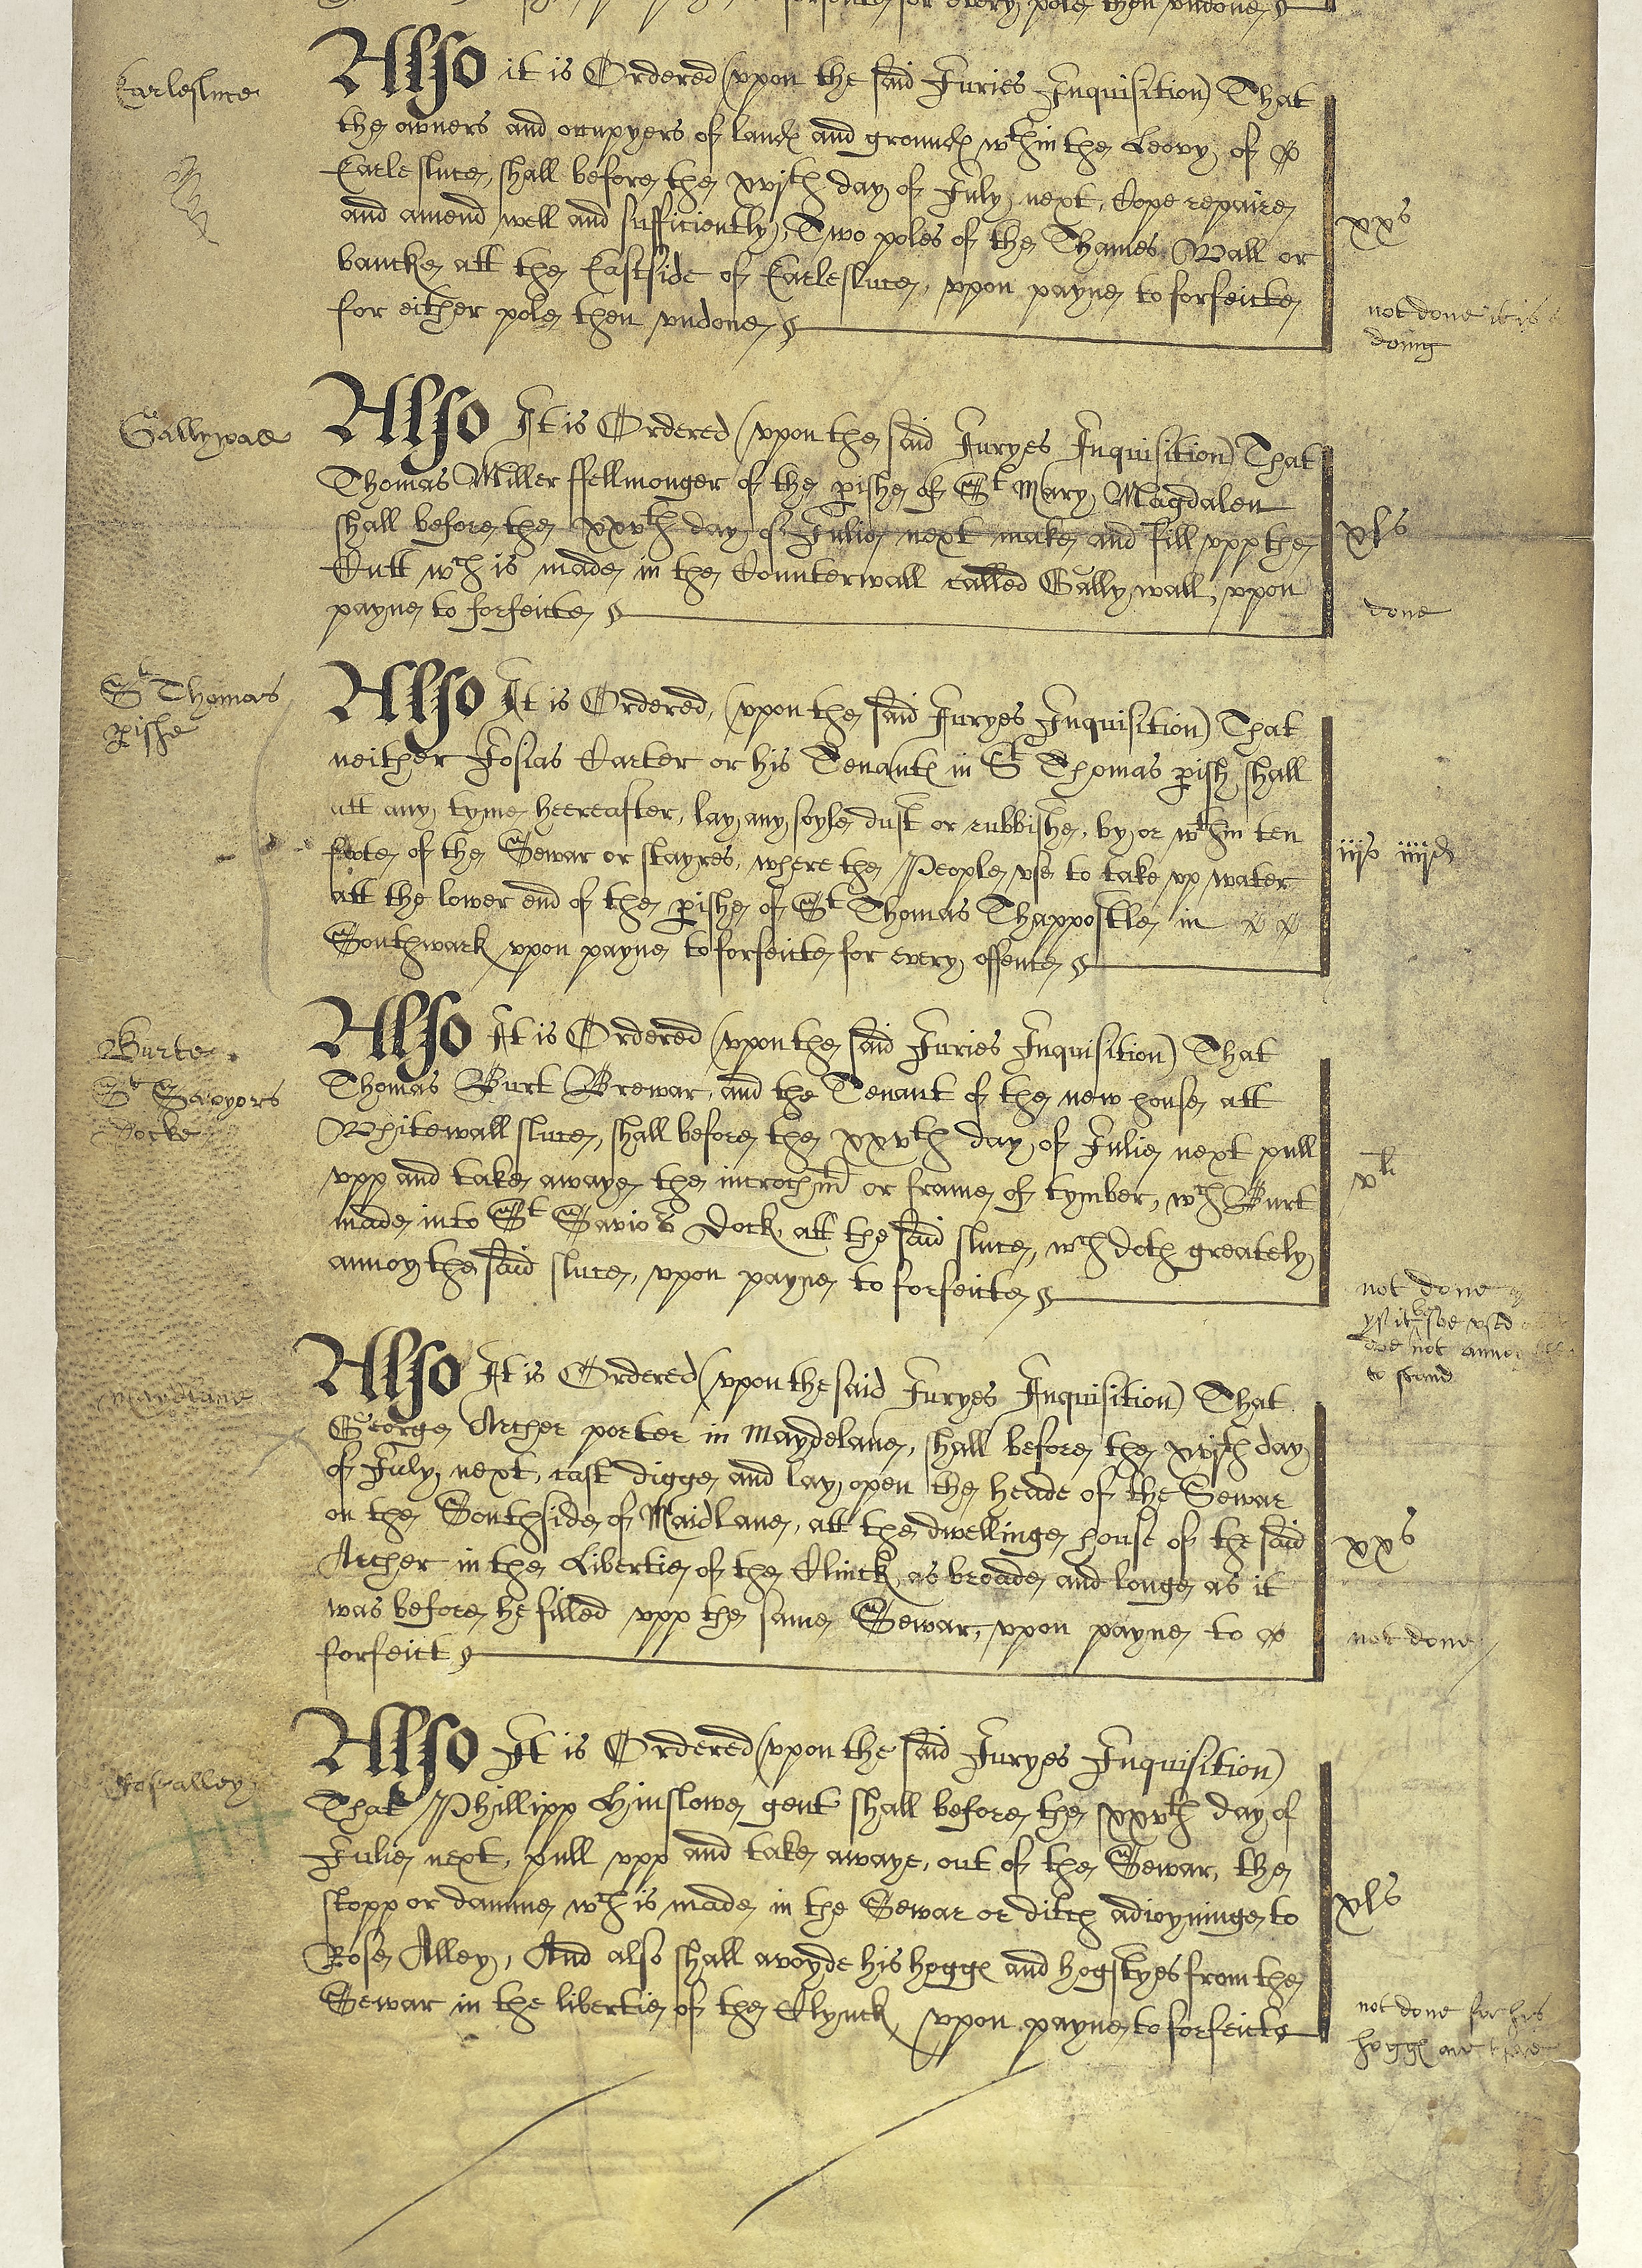 forfeite for every pole then vndone
Earlesluce
Also it is Ordered (vpon the said Juries Inquisition) That
the owners and occupyers of landℯ and groundℯ wthin the Leovy of
Earlesluce, shall before the xvjth day of July next, Cope repaire
and amend well and sufficiently, Two poles of the Thames Wall or
bancke att the Eastside of Earlesluce, vpon payne to forfeicte
for either pole then vndone
xxs
not done it is
doing
Gallywall
Also It is Ordered (vpon the said Juryes Inquisition) That
Thomas Miller ffellmonger of the pishe of St Mary Magdalen
shall before the xxvth day of Julie next make and fill vpp the
Cutt wch is made in the Counterwall called Gally wall, vpon
payne to forfeicte
xls
done
St Thomas
pishe
Also It is Ordered, (vpon the said Juryes Inquisition) That
neither Josias Carter or his Tenantℯ in St Thomas pish shall
att any tyme heereafter, lay any soyle dust or rubbishe, by or wthin ten
foote of the Sewar or stayres, where the People vse to take vp water
att the lower end of the pishe of St Thomas Thappostle in
Southwark vpon payne to forfeicte for every offence
iijs iiijd
Burte
St Savyors
Docke
Also It is Ordered (vpon the said Juries Inquisition) That
Thomas Burt Brewar, and the Tenant of the new house att
Whitewall sluce, shall before the xxvth day of Julie next pull
vpp and take awaye the incrochmt or frame of tymber, wch Burt
made into St Saviors Dock, att the said sluce, wch doth greately
annoy the said sluce, vpon payne to forfeicte
vli
not done
yf it be soe vsed
doe not
to stand
Maydlane
Also It is Ordered (vpon the said Juryes Inquisition) That
George Archer porter in Maydelane, shall before the xvjth day
of July next, cast digge and lay open the heade of the Sewar
on the Southside of Maidlane, att the dwellinge house of the said
Archer in the Libertie of the Clinck as broade and longe as it
was before he filled vpp the same Sewar, vpon payne to
forfeict
xxs
not done
Rosealley
Also It is Ordered (vpon the said Juryes Inquisition)
That Phillipp Hinslowe gent shall before the xxvth day of
Julie next, pull vpp and take awaye, out of the Sewar, the
stopp or damme wch is made in the Sewar or ditch adioyninge to
Rose Alley, And also shall avoyde his hoggℯ and hogstyes from the
Sewar in the libertie of the Clynck, vpon payne to forfeicte
xls
not done for his
hoggℯ are there